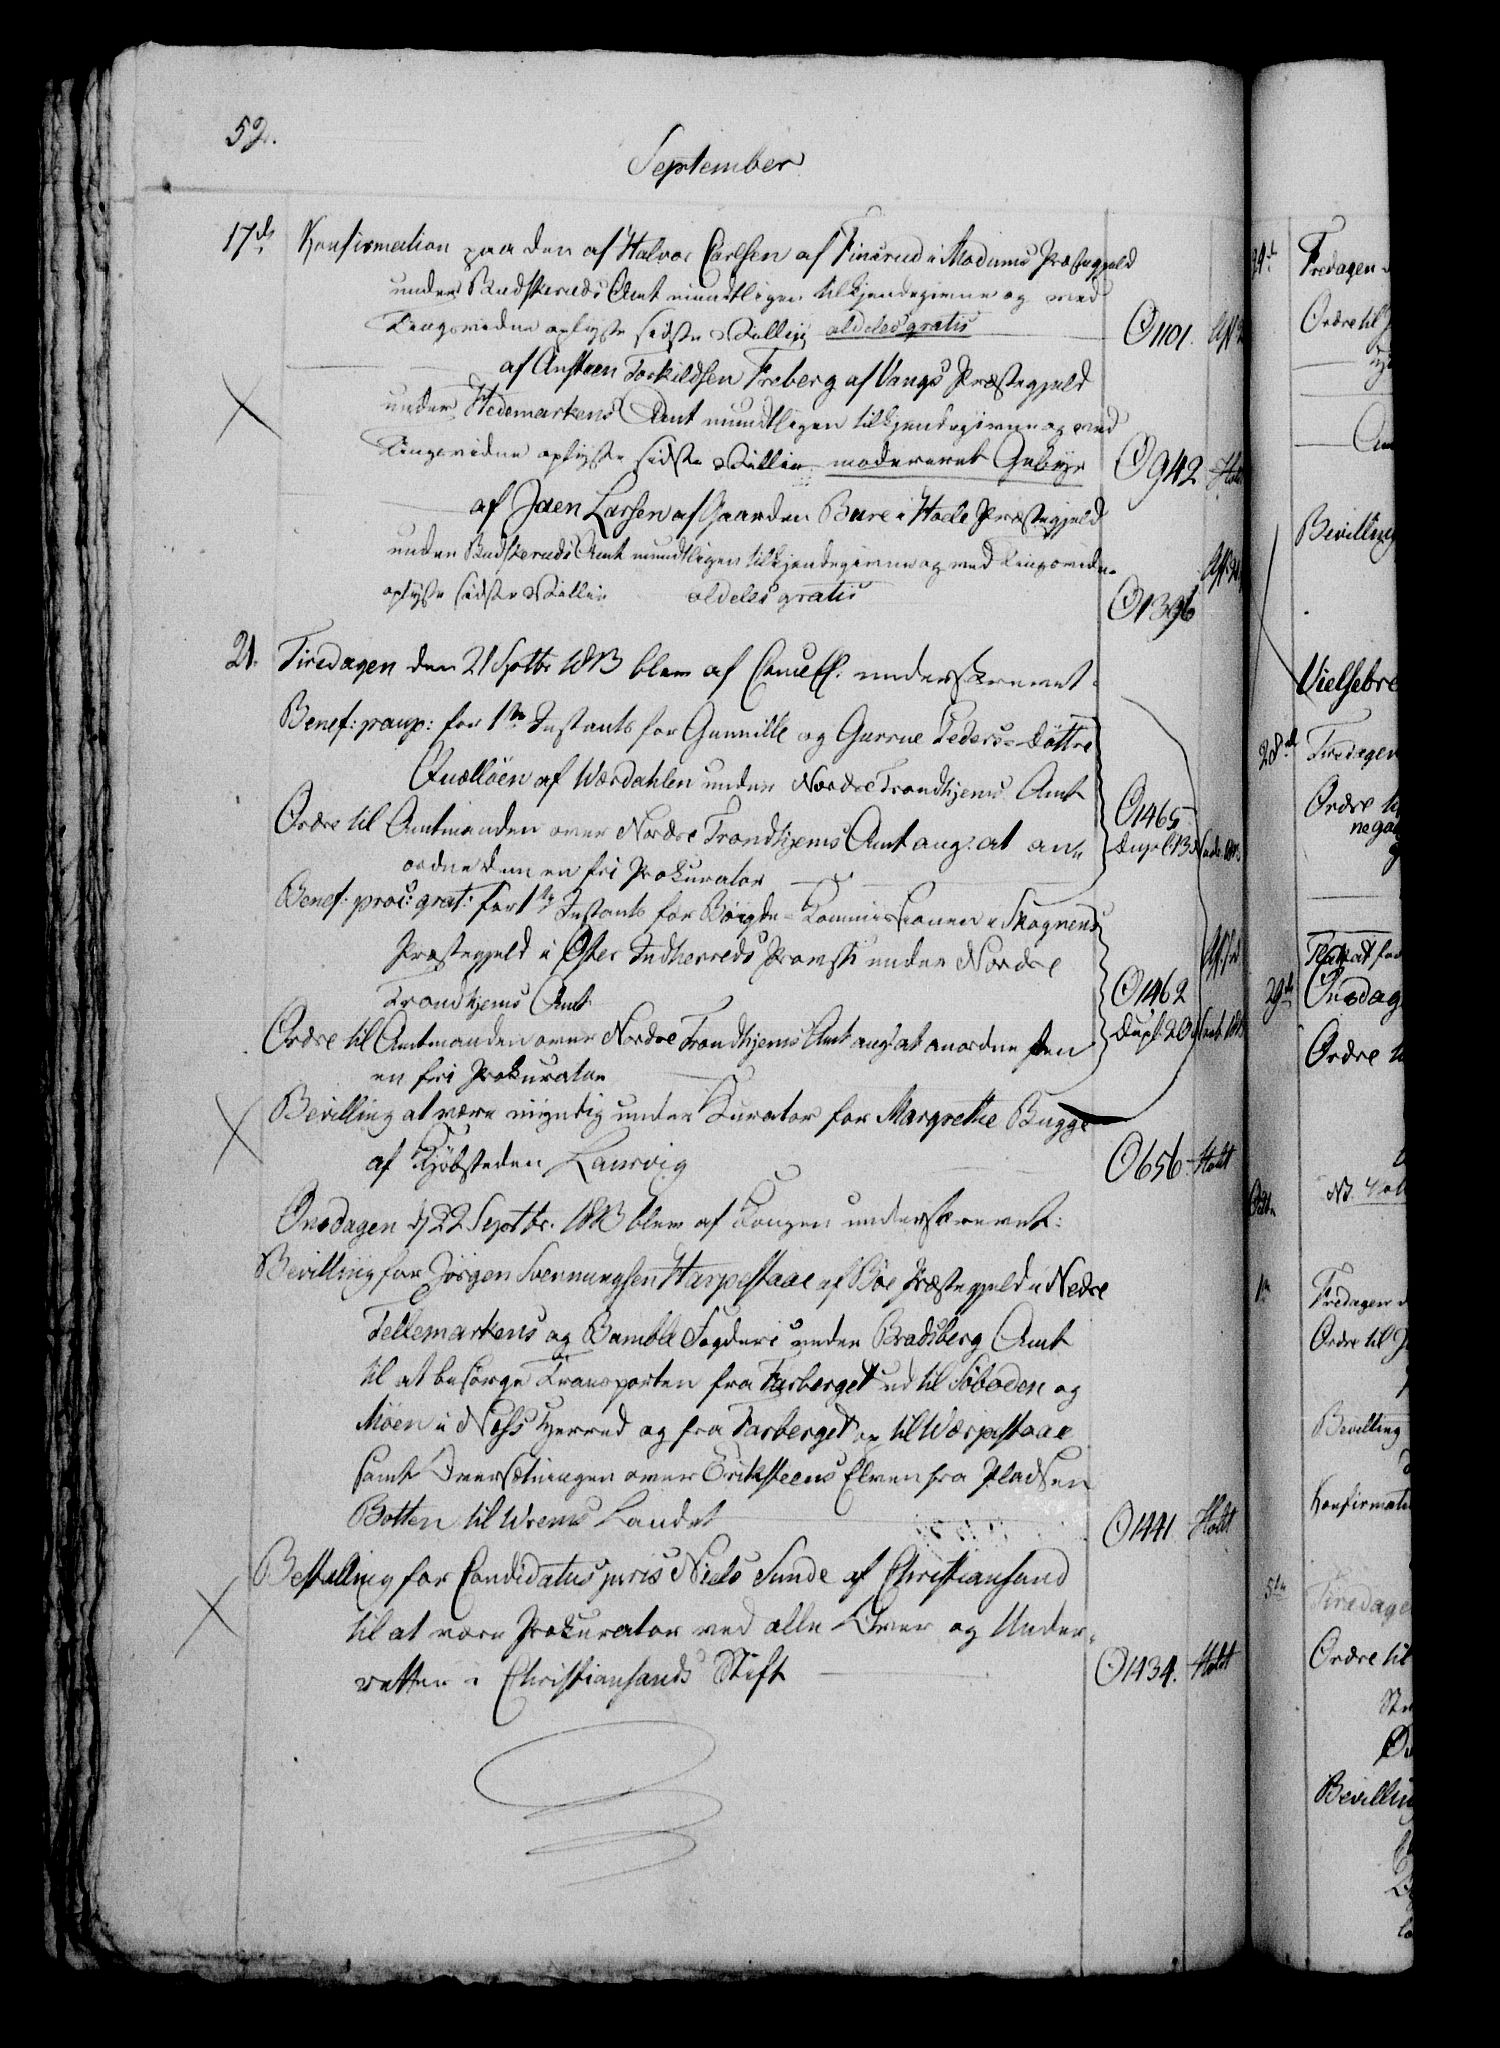 52.
September
17de Konfirmation paa den af Halvor Carlsen af Finsrud i Modums Præstegjeld
under Buskeruds Amt mundtligen tilkjendegivne og med
Tingsvidne oplyste sidste Villie aldeles gratis O 1101.
af Ansteen Torkildsen Freberg af Vangs Præstegjeld
under Hedemarkens Amt mundtligen tilkjendegivne og ved
Tingsvidne oplyste sidste Villie modereret Gebyr O 942
af Joen Larsen af Gaarden Bure i Hole Præstegjeld
under Buskeruds Amt mundtligen tilkjendegivne og med Tingsvidne
oplyste sidste Villie aldeles gratis O 1396
21. Tirsdagen den 21 Septbr 1813 blev af Cancell: underskrevet.
Benef: paup: for 1te Instants for Gunnille og Gurrue Peders-Døttre
Quælloen af Værdahlen under Nordre Trondhjems Amt O 1465
Ordre til Amtmanden over Nordre Trondhjems Amt ang: at an-
ordne dem en fri Prokurator
Benef: proc: grat: for 1te Instants for Bøigde-Kommissionen i Skognens
Præstegjeld i Øster Indherreds Provsti under Nordre
Trondhjems Amt O 1462
Ordre til Amtmanden over Nordre Trondhjems Amt ang: at anordne den
en fri Prokurator
Bevilling at være myndig under Kurator for Margrethe Bugge
af Kjøbsteden Laurvig O 656. Holdt
Onsdagen d 22 Septbr. 1813 blev af Kongen underskrevet:
Bevilling for Jørgen Svennungsen Harpestaae af Bøe Præstegjeld i Nedre
Tellemarkens og Bamble Fogderi under Bradsberg Amt
til at besørge Transporten fra Farberget ud til Søboden og
Møen i Næss Herred og fra Farberget op til Værpestaae
samt Oversætningen over Eriksteens Elven fra Pladsen
Botten til Vrems Landet O 1441 Holdt
Bestalling for Candidatus juris Niels Sunde af Christiansand
til at være Prokurator ved alle Over og Under-
retter i Christiansands Stift O 1434. Holdt
24de Fredagen
Ordre til
Bevilling
Vielsebre
28de Tirsdagen
Ordre til
29de Onsdag
Ordre
1te Fredagen
Ordre til
Bevilling
Konfirmati
5te Tirsdage
Ordre til
Bevilling